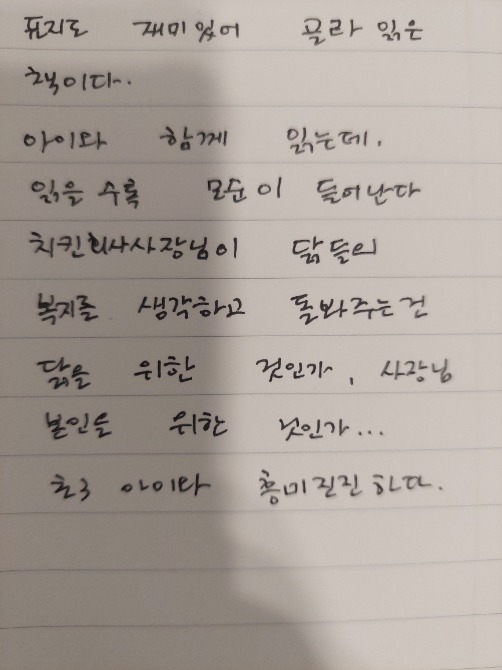 표지도 재미있어 골라 읽은
책이다.
아이와 함께 읽는데.
읽을 수록 모순이 들어난다
치킨회사사장님이 닭들의
복지를 생각하고 돌봐주는건
닭을 위한 것인가, 사장님
본인을 위한 것인가...
초3 아이와 흥미진진한다.